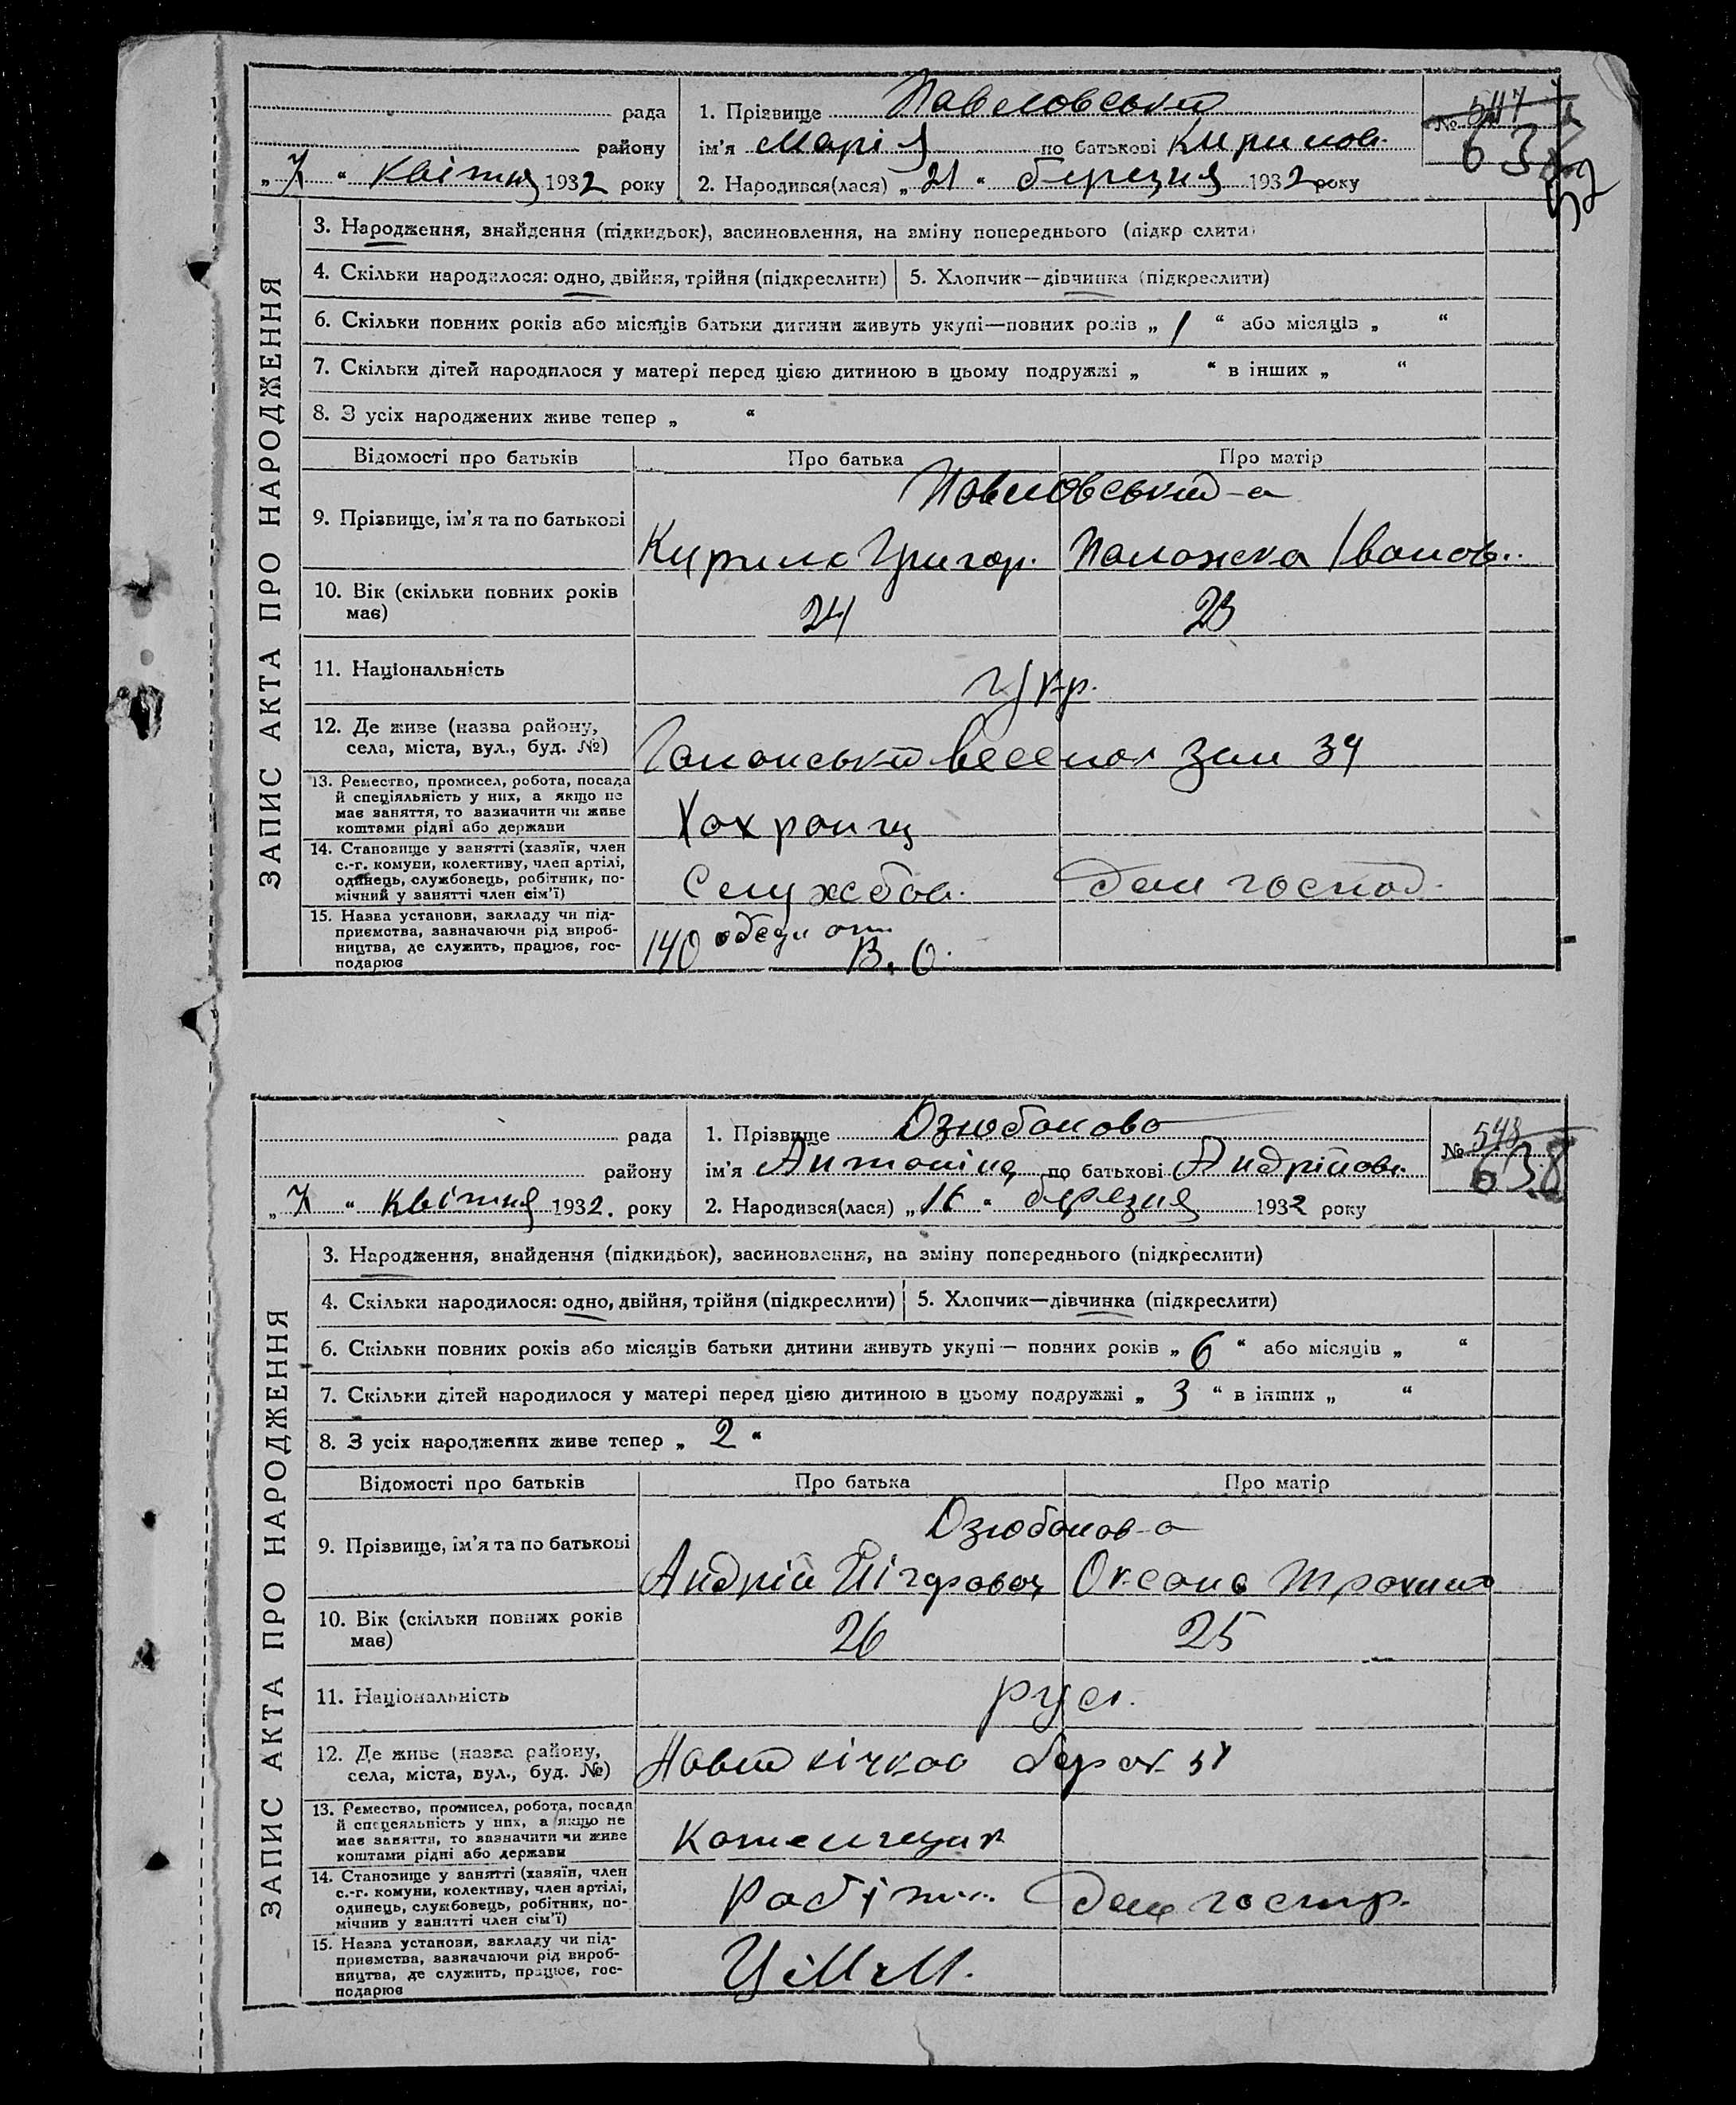 рада
району
„ 7 “ квітня 1932 року
1. Прізвище Павловський
ім'я Марія по батькові Кирилов.
2. Народився(лася) „ 21 “ березня 1932 року
№ 547
ЗАПИС АКТА ПРО НАРОДЖЕННЯ
3. Народження, знайдення (підкидьок), засиновлення, на зміну попереднього (підкреслити)
4. Скільки народилося: одно, двійня, трійня (підкреслити) 5. Хлопчик—дівчинка (підкреслити)
6. Скільки повних років або місяців батьки дитини живуть укупі—повних років „ 1 “ або місяців „ “
7. Скільки дітей народилося у матері перед цією дитиною в цьому подружжі „ “ в інших „ “
8. З усіх народжених живе тепер „ “
Відомості про батьків Про батька Про матір
9. Прізвище, ім'я та по батькові
Павловський-а
Кирило Григор. Палажка Іванов.
10. Вік (скільки повних років
має)
24 23
11. Національність
Укр.
12. Де живе (назва району,
села, міста, вул., буд. №)
зем 34
13. Ремество, промисел, робота, посада
й спеціяльність у них, а якщо не
має заняття, то зазначити чи живе
коштами рідні або держави
14. Становище у занятті (хазяїн, член
с.-г. комуни, колективу, член артілі,
одинець, службовець, робітник, по-
мічний у занятті член сім'ї)
Службов. дом господ.
15. Назва установи, закладу чи під-
приємства, зазначаючи рід вироб-
ництва, де служить, працює, гос-
подарює
140
В. О.
рада
району
„ 7 “ квітня 1932. року
1. Прізвище Дзюбанова
ім'я Антоніна по батькові Андрійов.
2. Народився(лася) „ 16 “ березня 1932 року
№ 548
638
ЗАПИС АКТА ПРО НАРОДЖЕННЯ
3. Народження, знайдення (підкидьок), засиновлення, на зміну попереднього (підкреслити)
4. Скільки народилося: одно, двійня, трійня (підкреслити) 5. Хлопчик—дівчинка (підкреслити)
6. Скільки повних років або місяців батьки дитини живуть укупі — повних років „ 6 “ або місяців „ “
7. Скільки дітей народилося у матері перед цією дитиною в цьому подружжі „ 3 “ в інших „ “
8. З усіх народжених живе тепер „ 2 “
Відомості про батьків Про батька Про матір
9. Прізвище, ім'я та по батькові
Дзюбанов-а
Андрій Оксана
10. Вік (скільки повних років
має)
26 25
11. Національність
рус.
12. Де живе (назва району,
села, міста, вул., буд. №)
Новий кічкас
13. Ремество, промисел, робота, посада
й спецсяльність у них, а якщо не
має заняття, то зазначити чи живе
коштами рідні або держави
14. Становище у занятті (хазяїн, член
с.-г. комуни, колективу, член артілі,
одинець, службовець, робітник, по-
мічнив у занятті член сім'ї)
Робітн. дом госпр.
15. Назва установи, закладу чи під-
приємства, зазначаючи рід вироб-
ництва, де служить, працює, гос-
подарює